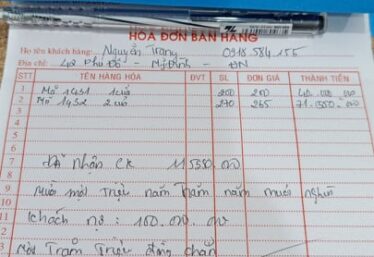 HÓA ĐƠN BÁN HÀNG
Họ tên khách hàng: Nguyễn Trang 0918.584.155
Địa chỉ: 42 Phú Đô - Mỹ Đình - HN
STT TÊN HÀNG HÓA ĐVT SL ĐƠN GIÁ THÀNH TIỀN
1 Mã 1451 1cuộ 200 200 40.000.000
2 Mã 1452 2 cuộ 270 265 71.550.000
3
7 đã nhận ck 11550.000
9 Mười một triệu năm trăm năm mươi nghìn
11 Khách nợ : 100.000.000
3 Một Trăm Triệu đồng chẵn